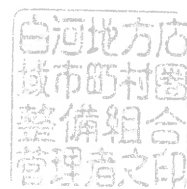 白河地方広
域市町村圏
整備組合
管理者之印